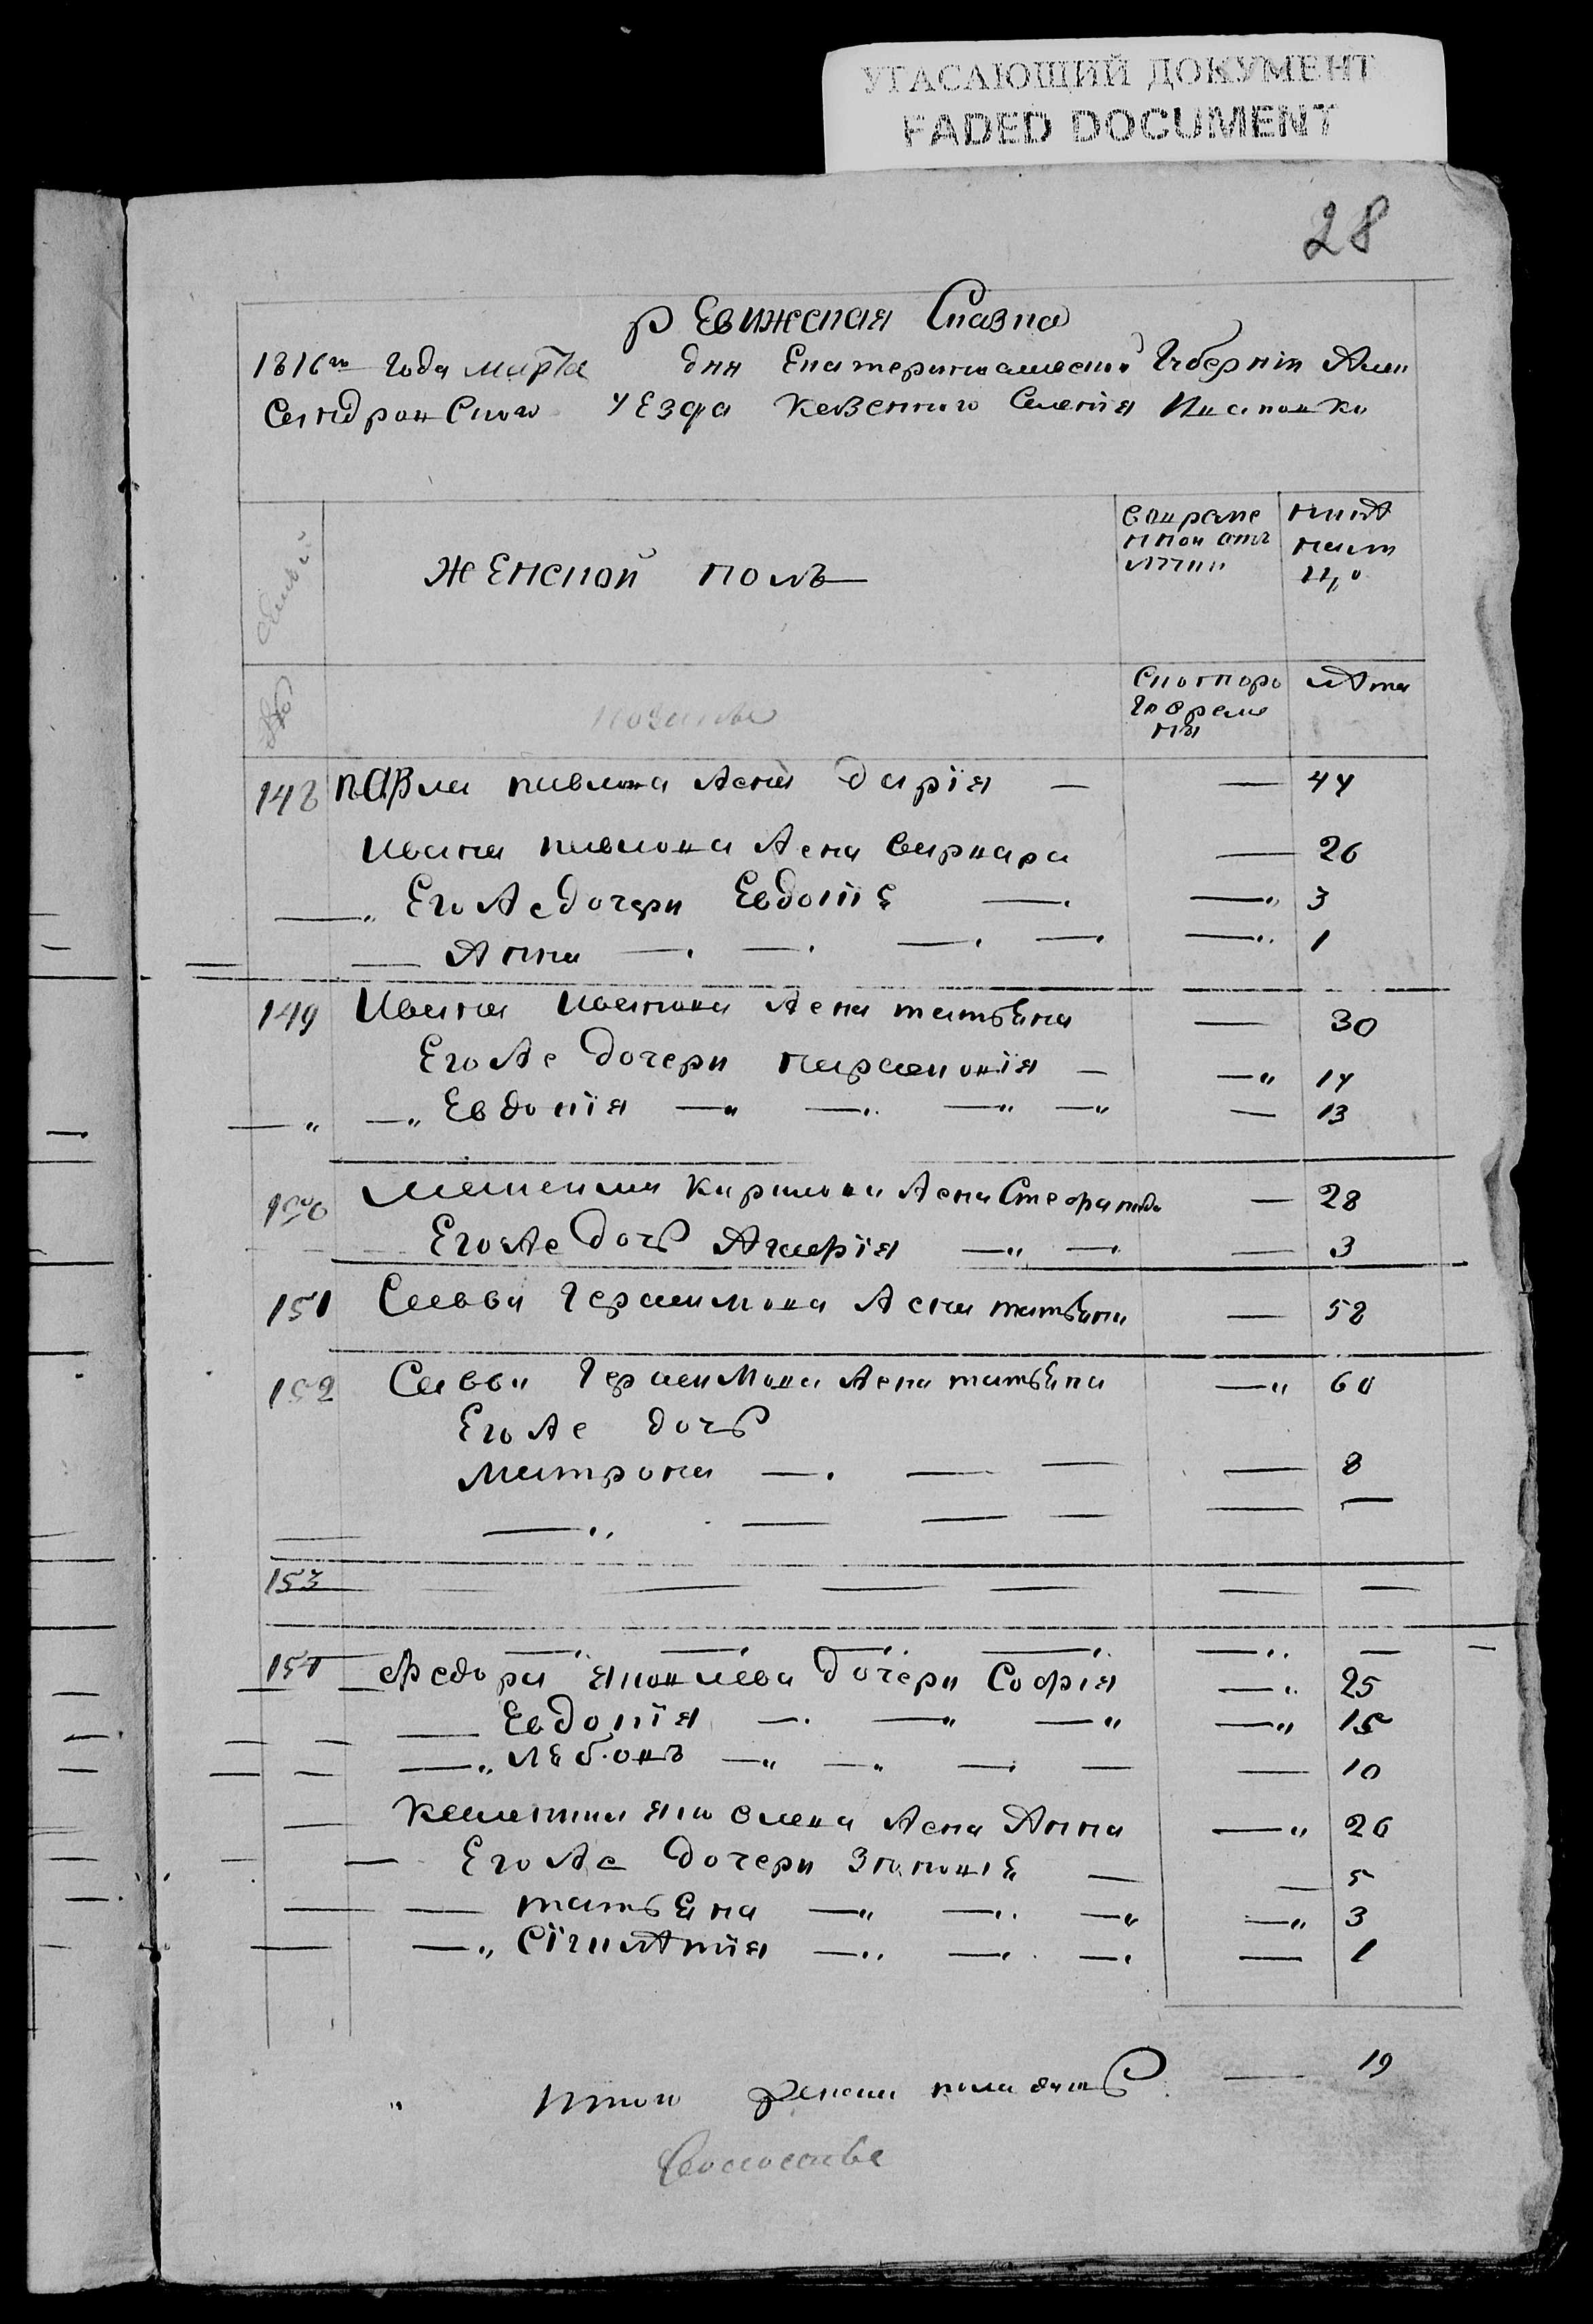 УГАСАЮЩИЙ ДОКУМЕНТ
FADED DOCUMENT
28
Ревижская Сказка
1816го Года марта дня Екатеринославской Губернїи Алек
сандровского уезда казенного Селенїя
Семьи
женской полъ
вовреме
нной отъ
лучки
ныне
на ли
цо
№
Скоторо
го време
ни
лета
148 павла павлова жена дарїя — — 44
Ивана павлова жена варвара — 26
— Его же дочери Евдокїя — — 3
— Анна — — — — — 1
149 Ивана Иванова жена татьяна — 30
Его же дочери парасковїя — — 14
— — Евдокїя — — — — — 13
150 Максима Кирилова жена Стефанида — 28
Его же дочь — — — 3
151 Саввы Герасимова жена татьяна — 52
152 Саввы Герасимова жена татьяна — 60
Его же дочь
Матрона — — — — 8
153 — — — — — —
154 Федора Яковлева дочери Софїя — 25
— Евдокїя — — — — 15
— — — — — — 10
— Яковлева жена Анна — 26
— Его же дочери — — 5
— — татьяна — — — — 3
— — — — — — 1
Итого женска пола душъ — 19